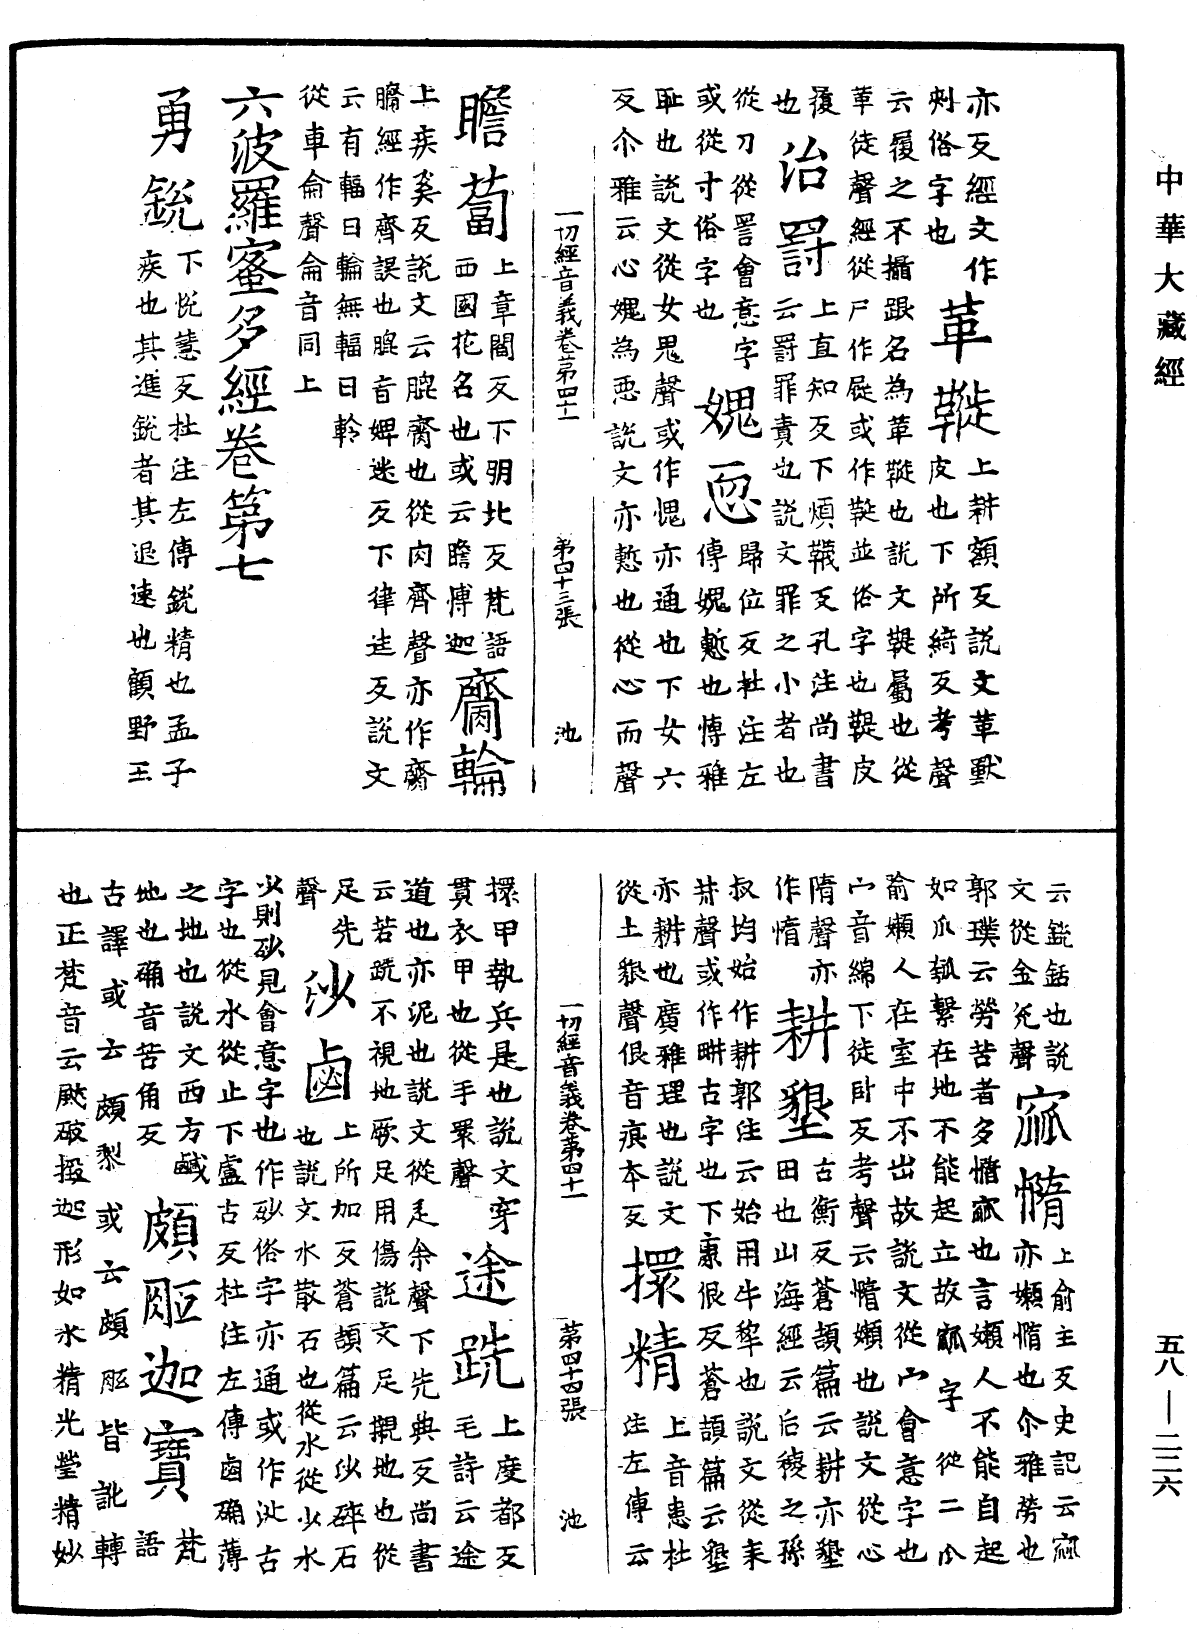 中華大藏經
亦反經文作革鞵上耕額反說文革獸
刾俗字也皮也下所綺反考聲
云履之不攝跟名為革鞵也說文鞮屬也從
革徙聲經從尸作屣或作鞵並俗字也鞮皮
履也治罰上直知反下煩韈反孔注尚書
云罰罪責也說文罪之小者也
從刀從詈會意字
或從寸俗字也媿恧歸位反杜注左
傳媿慙也博雅
恥也說文從女鬼聲或作愧亦通也下女六
反尒雅云心媿為恧說文亦慙也從心而聲
一切經音義卷第四十一 第四十三張 池
瞻蔔上章閻反下朋北反梵語
西國花名也或云瞻博迦臍輪
上疾奚反說文云膍臍也從肉齊聲亦作齎
臍經作齊誤也膍音婢迷反下律迍反說文
云有輻曰輪無輻曰軨
從車侖聲侖音同上
六波羅蜜多經卷第七
勇銳下悅慧反杜注左傳銳精也孟子
疾也其進銳者其退速也顧野王
云銳銛也說
文從金兊聲窳惰上俞主反史記云窳
亦嬾惰也尒雅勞也
郭璞云勞苦者多惰窳也言嬾人不能自起
如瓜瓠繫在地不能起立故窳字從二瓜
喻嬾人在室中不出故說文從宀會意字也
宀音綿下徒臥反考聲云惰嬾也說文從心
隋聲亦
作惰耕墾古衡反蒼頡篇云耕亦墾
田也山海經云后稷之孫
叔均始作耕郭注云始用牛犂也說文從耒
井聲或作畊古字也下康佷反蒼頡篇云墾
亦耕也廣雅理也說文
從土貇聲佷音痕本反擐精上音患杜
注左傳云
一切經音義卷第四十一 第四十四張 池
擐甲執兵是也說文穿
貫衣甲也從手睘聲途跣上度都反
毛詩云途
道也亦泥也說文從辵余聲下先典反尚書
云若跣不視地厥足用傷說文足親地也從
足先
聲沙鹵上所加反蒼頡篇云沙碎石
也說文水散石也從水從少水
少則砂見會意字也作砂俗字亦通或作沘古
字也從水從止下盧古反杜注左傳鹵确薄
之地也說文西方鹹
地也确音苦角反頗胝迦寶梵
語
古譯或云頗梨或云頗胝皆訛轉
也正梵音云颰破揬迦形如水精光瑩精妙
五八—二二六